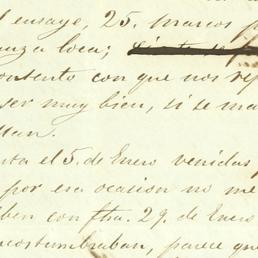 l ensaye, 25. marcos p
anza loca;
onsento con que nos rep
ser muy bien, si se ma
llan.
sta el 5. de Enero venidas p
por esa ocasion no me
iben con fha. 29. de Enero
acostumbraban, parece que